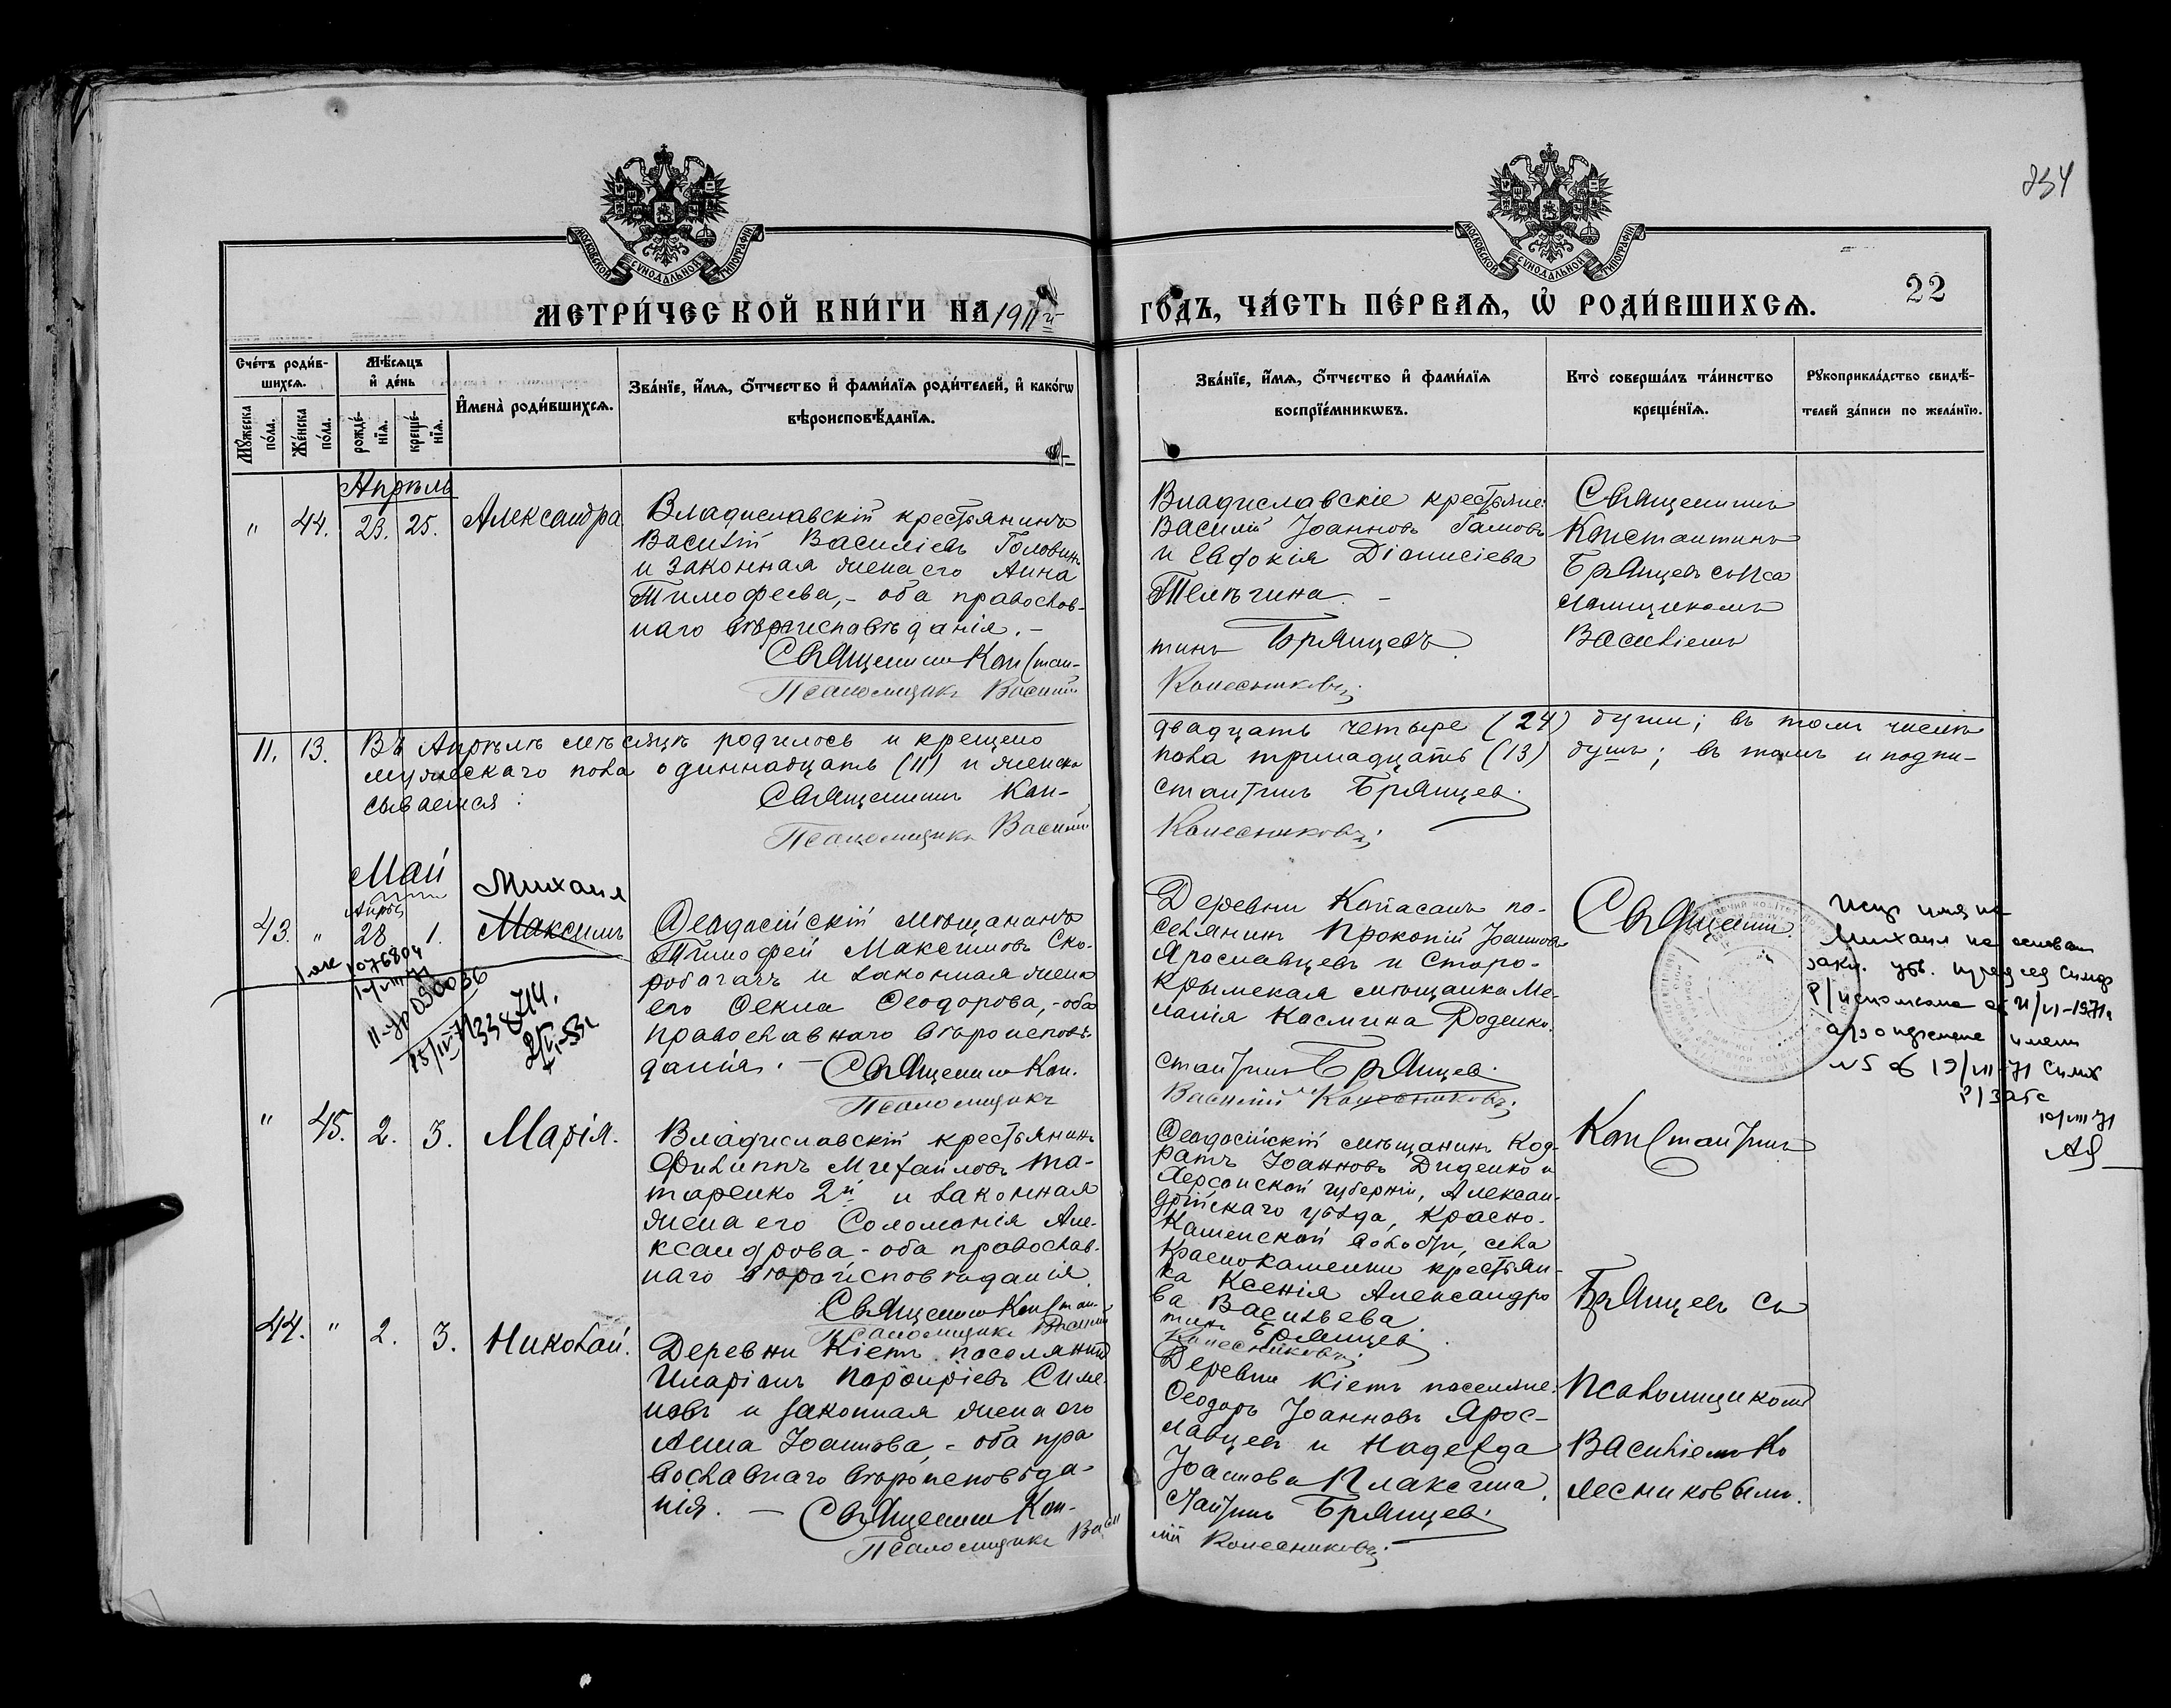 834
МОСКОВСКОЙ СѴНОДАЛЬНОЙ ТИПОГРАФІИ
МОСКОВСКОЙ СѴНОДАЛЬНОЙ ТИПОГРАФІИ
МЕТРИ́ЧЕСКОЙ КНИ́ГИ НА 1911й
ГО́ДЪ, ЧА́СТЬ ПЕ́РВАѦ, Ѡ҆ РОДИ́ВШИХСѦ.
22
Сче́тъ роди́в-
шихсѧ.
Мꙋ́жеска
по́ла.
Же́нска
по́ла.
Мѣ́сѧцъ
и҆ де́нь
рожде́-
нїѧ.
креще́-
нїѧ.
И҆мена̀ роди́вшихсѧ.
Зва́нїе, и҆́мѧ, ѻ҆́тчество и҆ фами́лїѧ роди́телей, и҆ како́гѡ
вѣроисповѣ́данїѧ.
Зва́нїе, и҆́мѧ, ѻ҆́тчество и҆ фами́лїѧ
воспрїе́мникѡвъ.
Кто̀ соверша́лъ та́инство
креще́нїѧ.
Рꙋкоприкла́дство свидѣ́-
телей за́писи по жела́нїю.
Апрѣль
" 44. 23. 25. Александра
Владиславскій крестьянинъ
Василій Василіевъ Головинъ
и законная жена его Анна
Тимофеева,- оба православ-
наго вѣроисповѣданія.-
Священникъ Констан-
Псаломщикъ Василій
Владиславскіе крестьяне:
Василій Іоанновъ
и Евфокія Діонисіева
Телѣгина. -
тинъ Брянцевъ.
Колесниковъ;
Священникъ
Константинъ
Брянцевъ съ пса
ломщикомъ
Василіемъ
11. 13. Въ Апрѣлѣ мѣсяцѣ родилось и крещено
мужескаго пола одиннадцать (11) и женска
сываемся:
Священникъ Кон-
Псаломщикъ Василій
двадцать четыре (24) души; въ томъ числѣ
пола тринадцать (13) душъ; въ томъ и подпи-
стантинъ Брянцевъ.
Колесниковъ;
Май
Апрѣ
Михаил
43. " 28 1. Максимъ
1076804
10/VIII 71
090036
338714.
Ѳеодосійскій мѣщанинъ
Тимофей Максимовъ Ско-
робогачъ и законная жена
его Ѳекла Ѳеодорова,-оба
православнаго вѣроисповѣ-
данія. - Священникъ Кон.
Псаломщикъ
Деревни Копасанъ по-
селянинъ Прокопій Іоанновъ
Ярославцевъ и Старо-
крымская мѣщанка Ме-
ланія Космина Роденко.
стантинъ Брянцевъ.
Василій Колесниковъ;
Священни
имя на
Михаил на основан
закл.
Р/исполкома от 21/VI-1971г
имени
N5 от 19/VII-71 Симф
Р/загс
10/VIII 71
" 45. 2. 3. Марія.
Владиславскій крестьянинъ
Филиппъ Михайловъ Та-
таренко 2й и законная
жена его Соломонія Але-
ксандрова - оба православ-
наго вѣроисповѣданія.
Священникъ Констан-
Псаломщикъ Василій
Ѳеодосійскій мѣщанинъ Код-
ратъ Іоанновъ Диденко и
Херсонской губерніи, Алексан-
дрійскаго уѣзда, Красно-
каменской волости, села
Краснокаменки крестьян-
ка Ксенія Александро
ва Васильева.
тинъ Брянцевъ.
Колесниковъ;
Константинъ
44. " 2. 3. Николай.
Деревни Кіетъ поселянинъ
Иларіонъ Порфиріевъ Симо
новъ и законная жена его
Анна Іоаннова, - оба пра
вославнаго вѣроисповѣда-
нія. - Священникъ Кон-
Псаломщикъ Васи
Деревни Кіетъ поселяне:
Ѳеодоръ Іоанновъ Ярос-
лавцевъ и Надежда
Іоаннова Плаксина.
стантинъ Брянцевъ.
лій Колесниковъ;
Брянцевъ съ
псаломщикомъ
Василіемъ Ко
лесниковымъ.